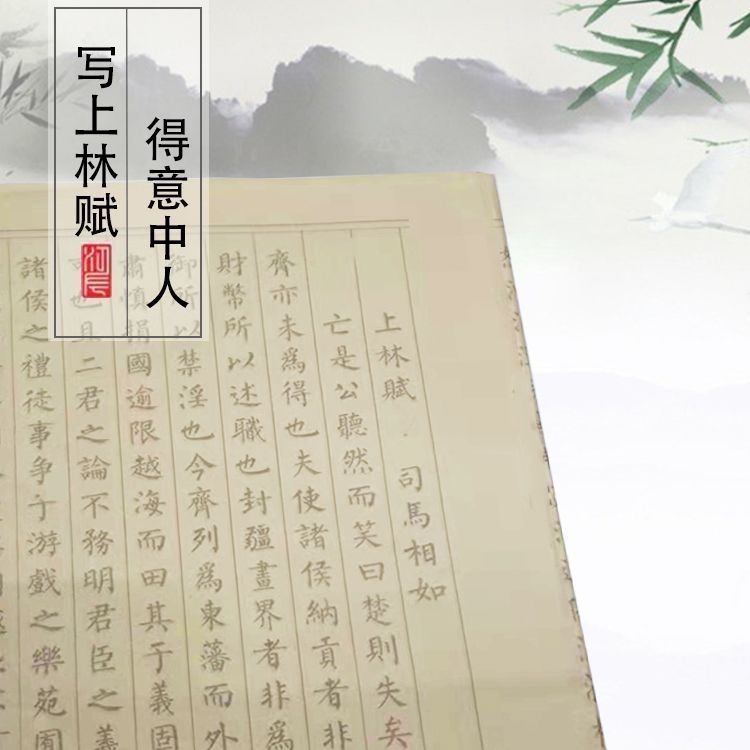 写上林赋
得意中人
上林賦·司馬相如
亡是公聽然而笑曰楚則失矣
齊亦未爲得也夫使諸侯納貢者非
財幣所以述職也封疆畫界者非爲
御所以禁淫也今齊列爲東藩而外
肅慎捐國逾限越海而田其于義固
可也且二君之論不務明君臣之義
諸侯之禮徒事爭于游戲之樂苑囿